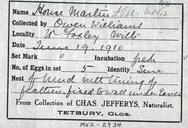 Name House Martin
Collected by Owen Williams
Locality W. Foxley Wilts
Date June 19. 1910
Set Mark Incubation fresh
No. of Eggs in set 5 Identity Sure
Nest of Mud with lining of
feathers, fixed to wall under eaves
From Collection of CHAS. JEFFERYS, Naturalist.
TETBURY, GLOS.